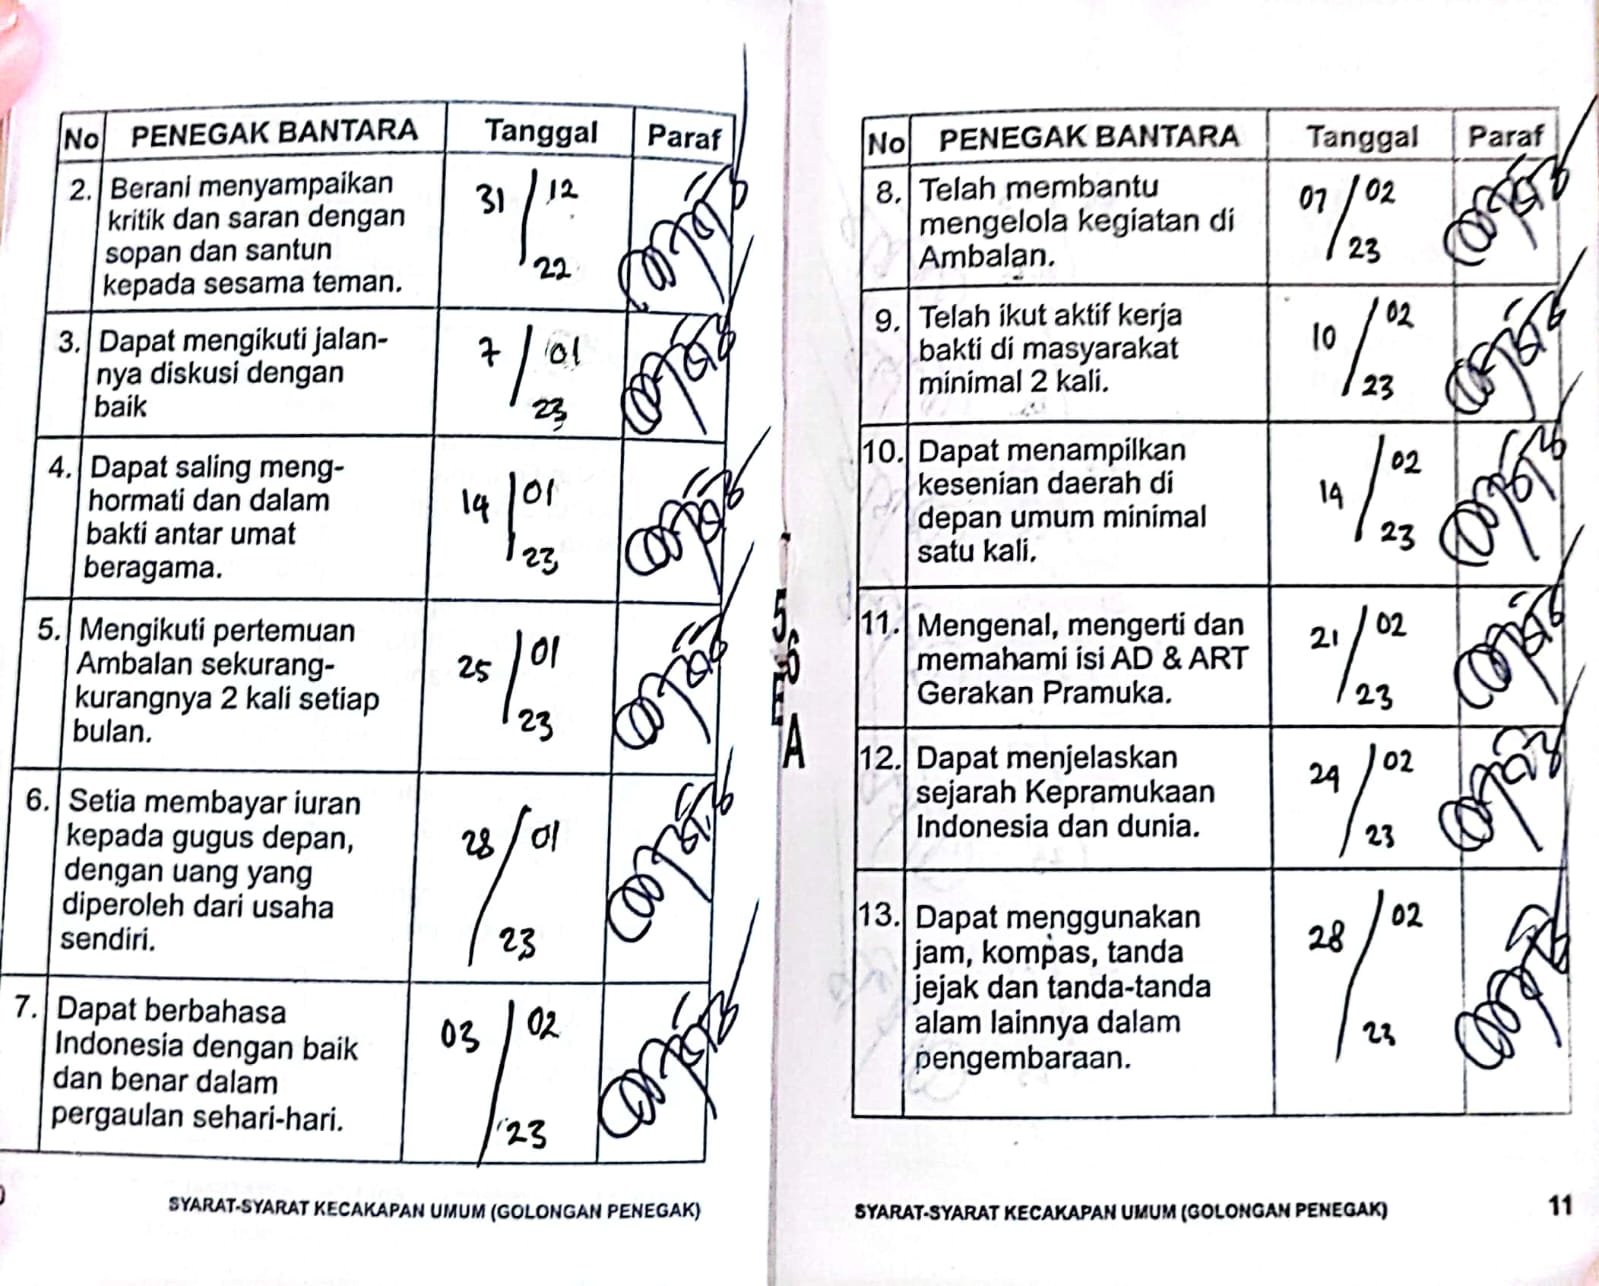 No PENEGAK BANTARA Tanggal Paraf
2. Berani menyampaikan 31 / 12
kritik dan saran dengan
sopan dan santun 22
kepada sesama teman.
3. Dapat mengikuti jalan- 7 / 01
nya diskusi dengan
baik 23
4. Dapat saling meng-
hormati dan dalam 14 / 01
bakti antar umat
beragama. 23
5. Mengikuti pertemuan
Ambalan sekurang- 25 / 01
kurangnya 2 kali setiap
bulan. 23
6. Setia membayar iuran
kepada gugus depan, 28 / 01
dengan uang yang
diperoleh dari usaha
sendiri. 23
7. Dapat berbahasa
Indonesia dengan baik 03 / 02
dan benar dalam
pergaulan sehari-hari. 23
SYARAT-SYARAT KECAKAPAN UMUM (GOLONGAN PENEGAK)
No PENEGAK BANTARA Tanggal Paraf
8. Telah membantu 07 / 02
mengelola kegiatan di
Ambalan. 23
9. Telah ikut aktif kerja 10 / 02
bakti di masyarakat
minimal 2 kali. 23
10. Dapat menampilkan
kesenian daerah di 14 / 02
depan umum minimal
satu kali. 23
11. Mengenal, mengerti dan 21 / 02
memahami isi AD & ART
Gerakan Pramuka. 23
12. Dapat menjelaskan 24 / 02
sejarah Kepramukaan
Indonesia dan dunia. 23
13. Dapat menggunakan 28 / 02
jam, kompas, tanda
jejak dan tanda-tanda
alam lainnya dalam 23
pengembaraan.
SYARAT-SYARAT KECAKAPAN UMUM (GOLONGAN PENEGAK) 11